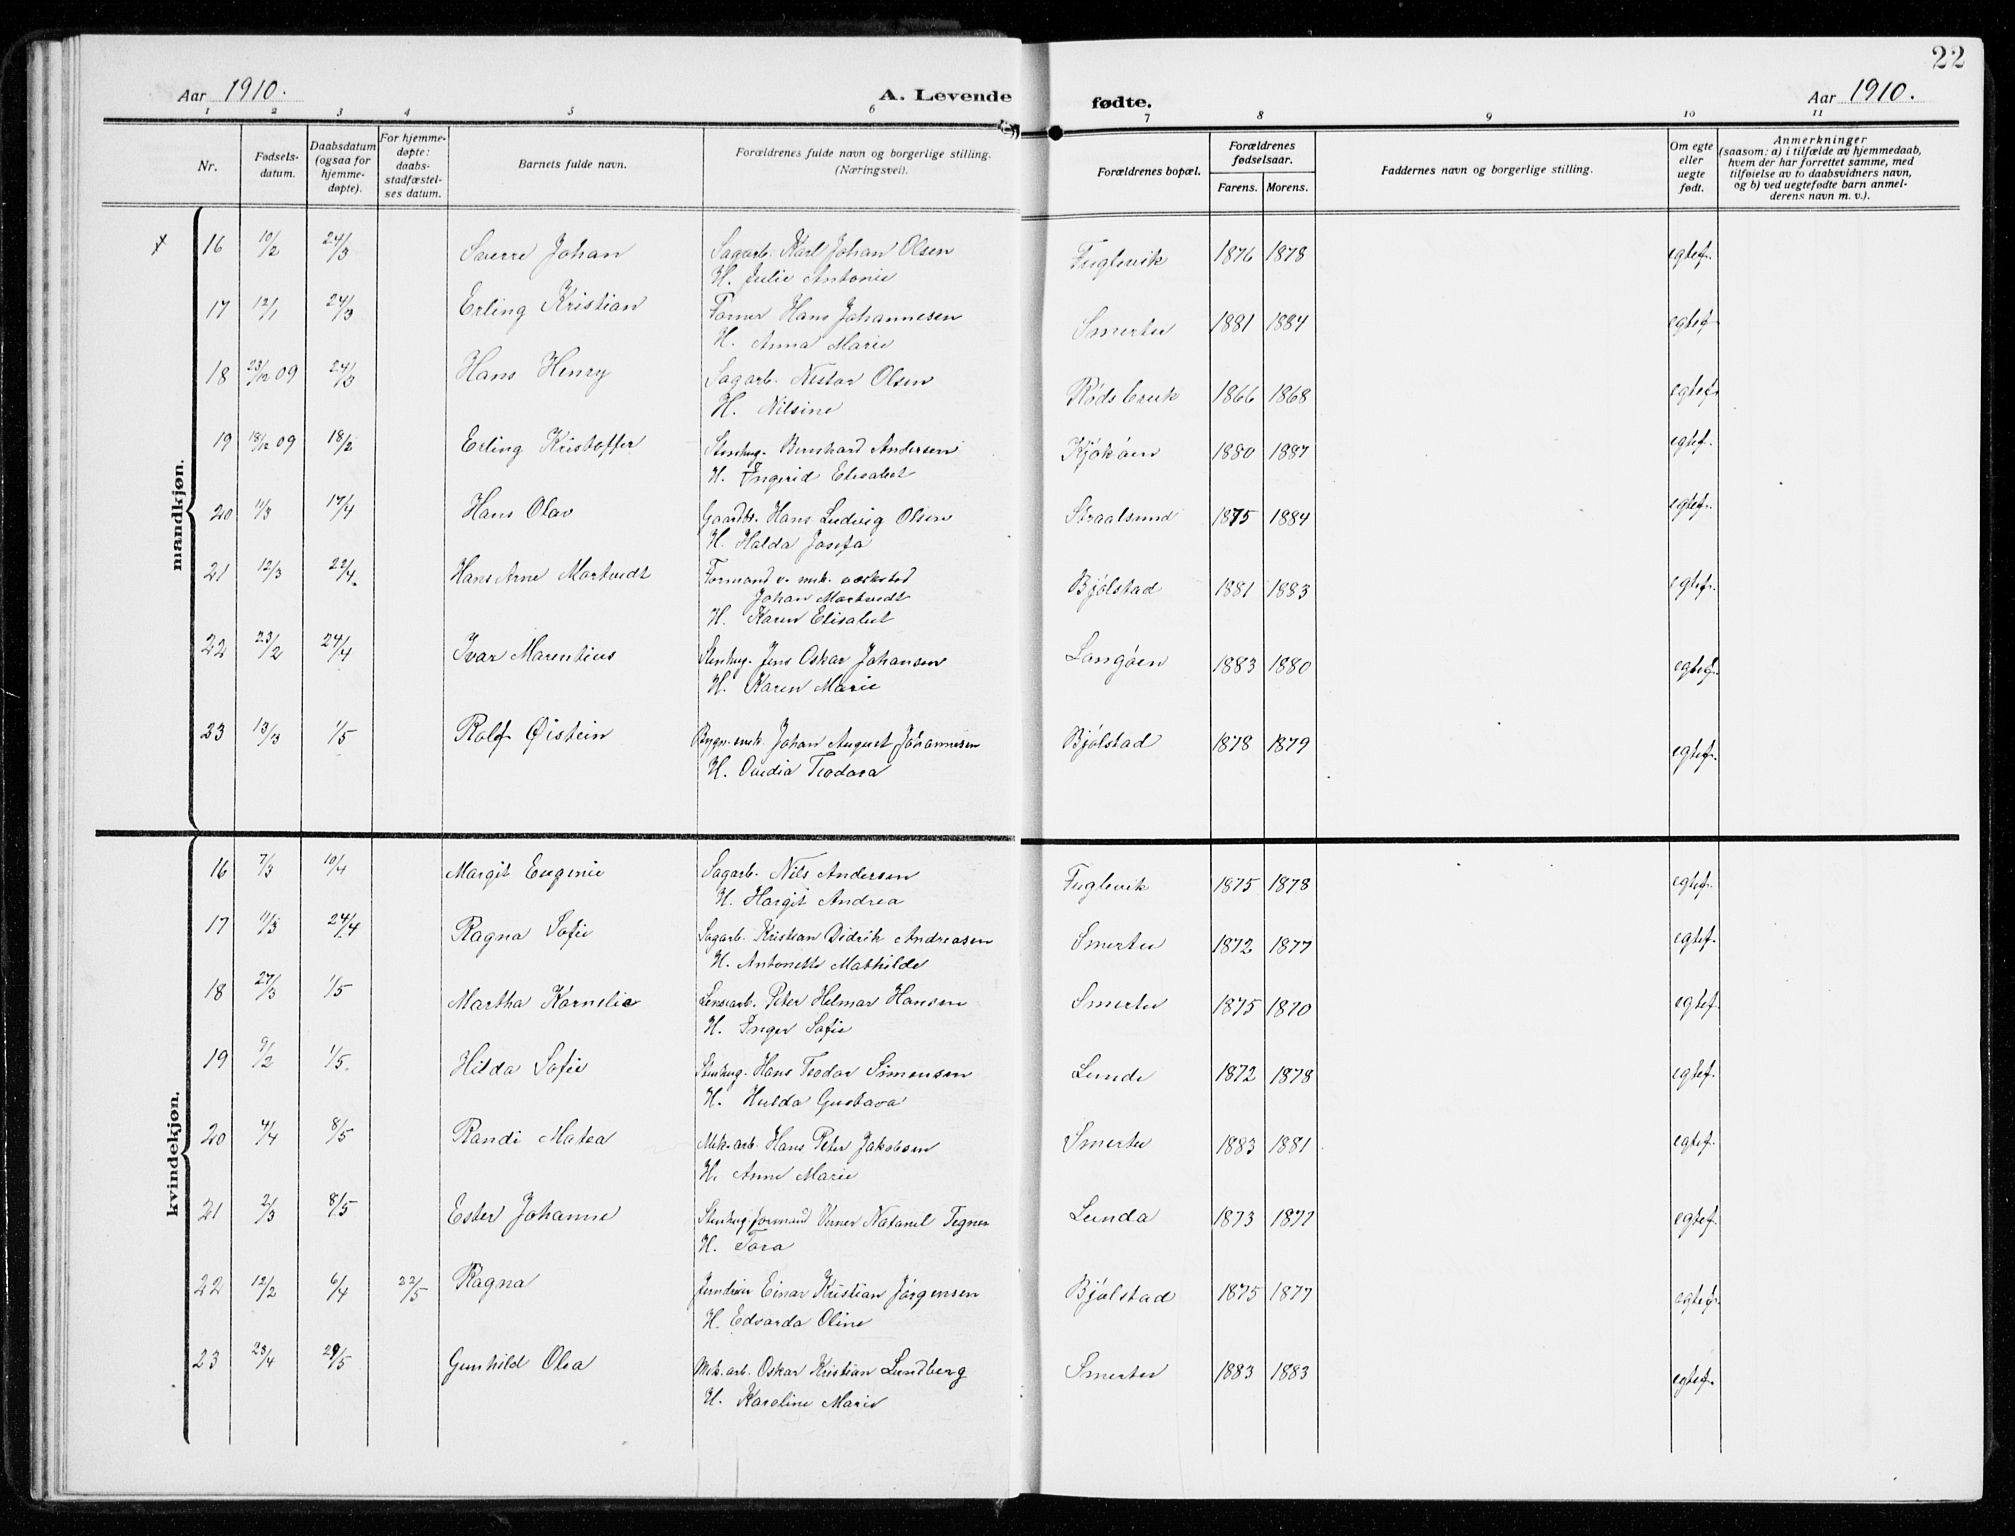 22
Aar 1910. A. Levende fødte. Aar 1910.
1 2 3 4 5 6 7 8 9 10 11
Nr. Fødsels-datum. Daabsdatum (ogsaa for hjemme-døpte). For hjemme-døpte: daabs-stadfæstel-ses datum. Barnets fulde navn. Forældrenes fulde navn og borgerlige stilling. (Næringsvei). Forældrenes bopæl. Forældrenes fødselsaar. Farens. Morens. Faddernes navn og borgerlige stilling. Om egte eller uegte født. Anmerkninger (saasom: a) i tilfælde av hjemmedaab, hvem der har forrettet samme, med tilføielse av to daabsvidners navn, og b) ved uegtefødte barn anmel-derens navn m. v.).
mandkjøn.
16 10/2 24/3 Sverre Johan Sagarb. Karl Johan Olsen Fuglevik 1876 1878 egtef.
H. Julie Antonie
17 12/1 24/3 Erling Kristian Former Hans Johannesen Smertu 1881 1884 egtef.
H. Anna Marie
18 23/12 09 24/3 Hans Henry Sagarb. Nestor Olsen Rødsbruk 1866 1868 egtef.
H. Nilsine
19 18/12 09 18/2 Erling Kristoffer Stenhug. Bernhard Andersen Kjøkøen 1880 1887 egtef.
H. Ingerid Elisabet
20 11/3 17/4 Hans Olav Gaardbr. Hans Ludvig Olsen Straalsund 1875 1884 egtef.
H. Halda Josefa
21 12/3 22/4 Hans Arne Martvedt Formand v. mek. værksted Bjølstad 1881 1883 egtef.
Johan Martvedt
H. Karen Elisabet
22 23/2 24/4 Ivar Marentius Stenhug. Jens Oskar Johansen Langøen 1883 1880 egtef.
H. Karen Marie
23 13/3 1/5 Rolf Øistein Bygn. snik. Johan August Johannesen Bjølstad 1878 1879 egtef.
H. Ovedia Teodora
kvindekjøn.
16 7/3 10/4 Margit Eugenie Sagarb. Nils Andersen Fuglevik 1875 1878 egtef.
H. Hargit Andrea
17 11/3 24/4 Ragna Sofie Sagarb. Kristian Didrik Andreasen Smertu 1872 1877 egtef.
H. Antonette Mathilde
18 27/3 1/5 Martha Kornelie Lensearb. Peter Helmar Hansen Smertu 1875 1870 egtef.
H. Inger Sofie
19 9/2 1/5. Hilda Sofie Stenhug. Hans Teodor Simensen Lunde 1872 1878 egtef.
H. Hulda Gustava
20 4/4 8/5 Randi Matea Mek. arb. Hans Peter Jakobsen Smertu 1883 1881 egtef.
H. Anne Marie
21 2/3 8/5 Ester Johanne Stenhug. formand Verner Natanel Tegner Lunda 1873 1877 egtef.
H. Tora
22 12/2 6/4 22/5 Ragna Jerndreier Einar Kristian Jørgensen Bjølstad 1875 1877 egtef.
H. Edvarda Oline
23 23/4 29/5 Gunhild Olea Mek. arb. Oskar Kristian Lundberg Smertu 1883 1883 egtef.
H. Karoline Marie